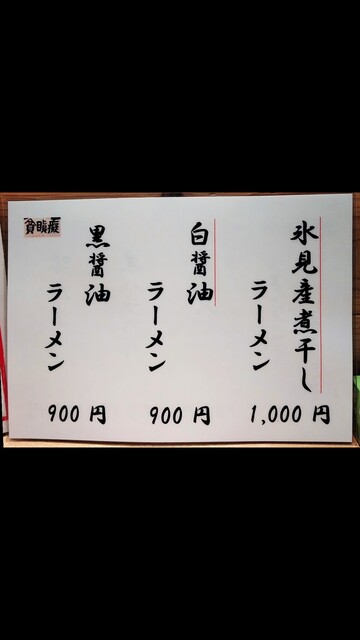 氷見産煮干し
ラーメン
1,000 円
白醤油
ラーメン
900 円
黒醤油
ラーメン
900 円
貧瞋癡